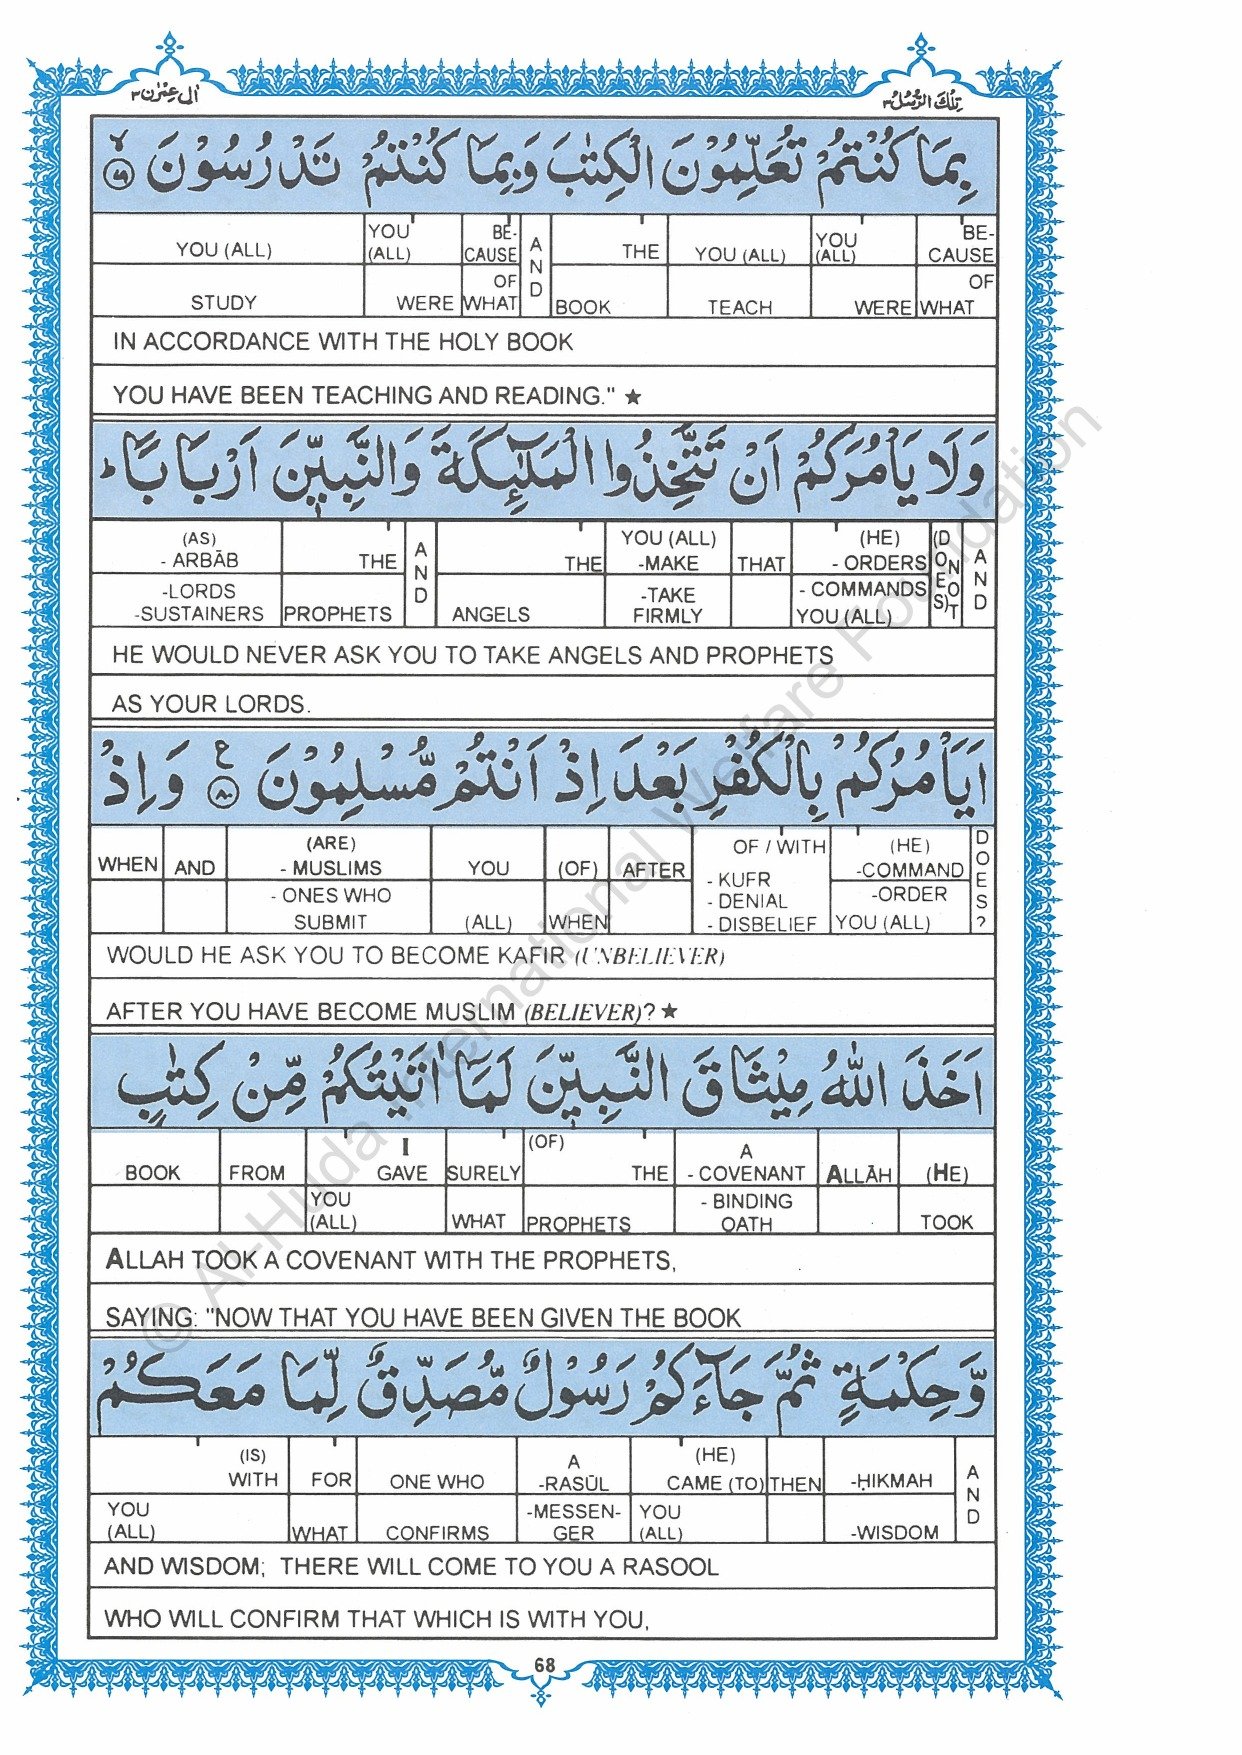 اٰلِ عِمْرٰن ٣
تِلْكَ الرُّسُلُ ٣
بِمَا كُنْتُمْ تُعَلِّمُوْنَ الْكِتٰبَ وَبِمَا كُنْتُمْ تَدْرُسُوْنَ ۙ ﴿٧٩﴾
YOU (ALL) YOU (ALL) BE- CAUSE AND THE YOU (ALL) YOU (ALL) BE- CAUSE
STUDY WERE OF WHAT BOOK TEACH WERE OF WHAT
IN ACCORDANCE WITH THE HOLY BOOK
YOU HAVE BEEN TEACHING AND READING." ★
وَلَا يَاْمُرَكُمْ اَنْ تَتَّخِذُوا الْمَلٰٓئِكَةَ وَالنَّبِيّٖنَ اَرْبَابًا ؕ
(AS) - ARBĀB THE AND THE YOU (ALL) -MAKE THAT (HE) - ORDERS (DOES) NOT AND
-LORDS -SUSTAINERS PROPHETS ANGELS -TAKE FIRMLY - COMMANDS YOU (ALL)
HE WOULD NEVER ASK YOU TO TAKE ANGELS AND PROPHETS
AS YOUR LORDS.
اَيَاْمُرُكُمْ بِالْكُفْرِ بَعْدَ اِذْ اَنْتُمْ مُّسْلِمُوْنَ ﴿٨٠﴾ ع وَاِذْ
WHEN AND (ARE) - MUSLIMS YOU (OF) AFTER OF / WITH - KUFR (HE) -COMMAND DOES?
- ONES WHO SUBMIT (ALL) WHEN - DENIAL - DISBELIEF -ORDER YOU (ALL)
WOULD HE ASK YOU TO BECOME KAFIR (UNBELIEVER)
AFTER YOU HAVE BECOME MUSLIM (BELIEVER)? ★
اَخَذَ اللّٰهُ مِيْثَاقَ النَّبِيّٖنَ لَمَاۤ اٰتَيْتُكُمْ مِّنْ كِتٰبٍ
BOOK FROM I GAVE SURELY (OF) THE A - COVENANT ALLĀH (HE)
YOU (ALL) WHAT PROPHETS - BINDING OATH TOOK
ALLAH TOOK A COVENANT WITH THE PROPHETS,
SAYING: "NOW THAT YOU HAVE BEEN GIVEN THE BOOK
وَّحِكْمَةٍ ثُمَّ جَآءَكُمْ رَسُوْلٌ مُّصَدِّقٌ لِّمَا مَعَكُمْ
(IS) WITH FOR ONE WHO A -RASŪL (HE) CAME (TO) THEN -ḤIKMAH AND
YOU (ALL) WHAT CONFIRMS -MESSEN- GER YOU (ALL) -WISDOM
AND WISDOM; THERE WILL COME TO YOU A RASOOL
WHO WILL CONFIRM THAT WHICH IS WITH YOU,
68
© Al-Huda International Welfare Foundation